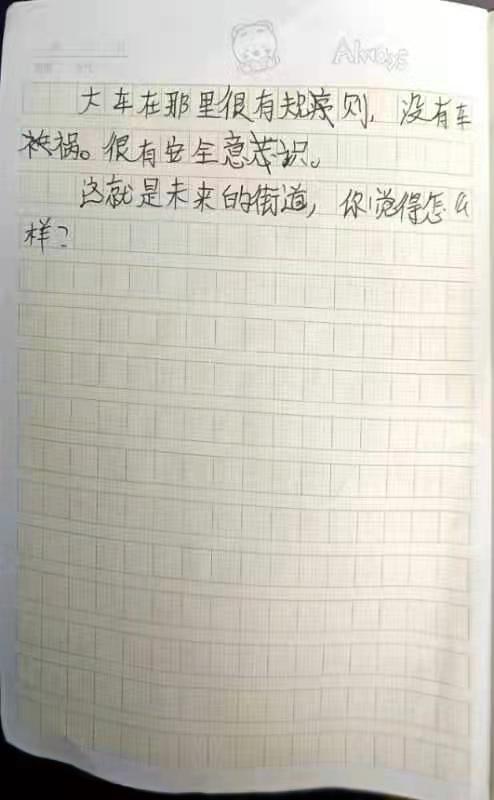 Always
大车在那里很有规则，没有车
祸。很有安全意识。
这就是未来的街道，你觉得怎么
样？